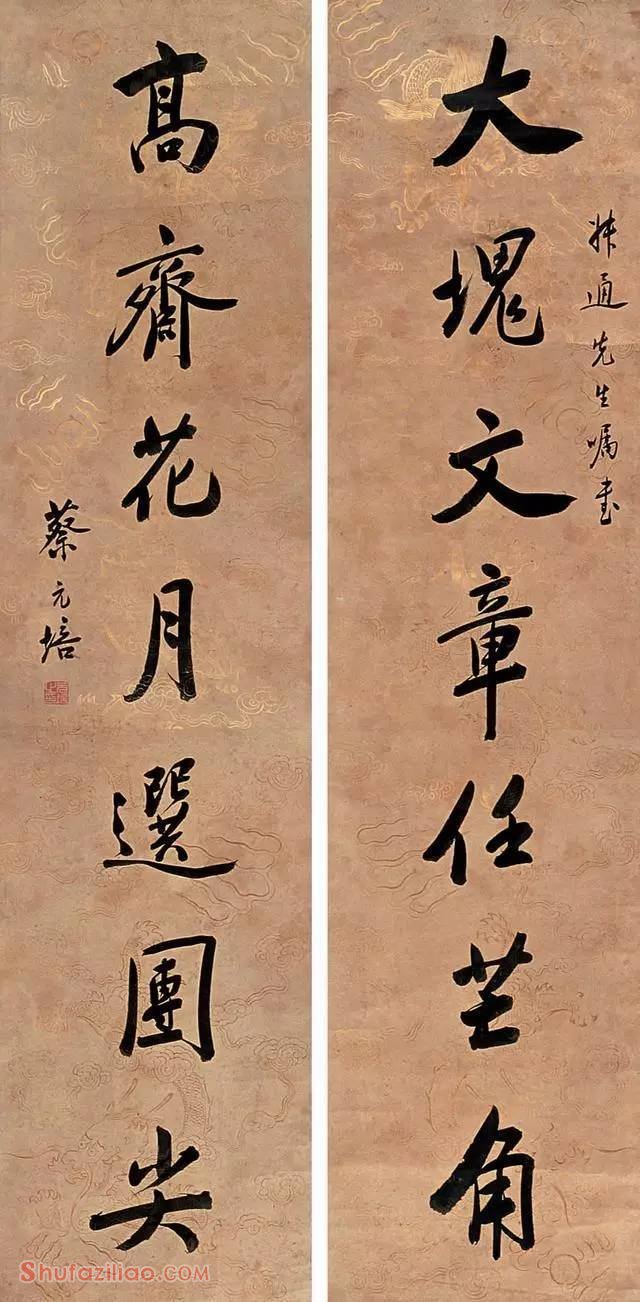 叔通先生嘱書
大塊文章任芒角
高齋花月選團尖
蔡元培
Shufaziliao.COM